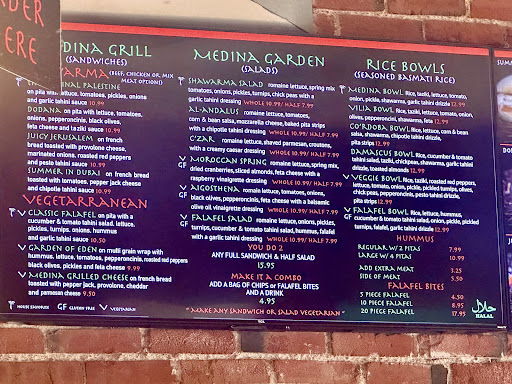 RDER
ERE
DINA GRILL
(SANDWICHES)
ARMA (BEEF, CHICKEN OR MIX
MEAT OPTIONS)
NAL PALESTINE
on pita with lettuce, tomatoes, pickles, onions
and garlic tahini sauce 10.99
DODANA on pita with lettuce, tomatoes,
onions, pepperoncinis, black olives,
feta cheese and taziki sauce 10.99
JUICY JERUSALEM on french
bread toasted with provolone cheese,
marinated onions, roasted red peppers
and pesto tahini sauce 10.99
SUMMER IN DUBAI on french bread
toasted with pepper jack cheese
and chipotle tahini sauce 10.99
VEGETARRANEAN
V CLASSIC FALAFEL on pita with a
cucumber & tomato tahini salad, lettuce,
pickles, turnips, onions, hummus and
garlic tahini sauce 10.50
V GARDEN OF EDEN on multi grain wrap with
hummus, lettuce, tomatoes, pepperoncinis, roasted red peppers
black olives, pickles and feta cheese 9.99
V MEDINA GRILLED CHEESE on french bread
toasted with pepper jack, provolone, cheddar
and parmesan cheese 9.50
HOUSE FAVORITE GF GLUTEN FREE V VEGETARIAN
MEDINA GARDEN
(SALADS)
SHAWARMA SALAD romaine lettuce, spring mix
tomatoes, onions, pickles, turnips, chick peas with a
garlic tahini dressing WHOLE 10.99/ HALF 7.99
AL-ANDALUS romaine lettuce, tomatoes,
corn & bean salsa, mozzarella cheese, baked pita strips
with a chipotle tahini dressing WHOLE 10.99/ HALF 7.99
CZAR romaine lettuce, shaved parmesan, croutons,
with a creamy caesar dressing WHOLE 10.99/ HALF 7.99
V MOROCCAN SPRING romaine lettuce, spring mix,
dried cranberries, sliced almonds, feta cheese with a
raspberry vinaigrette dressing WHOLE 10.99/ HALF 7.99
V AIGOSTHENA romain lettuce, tomatoes, onions,
GF black olives, pepperoncinis, feta cheese with a balsamic
olive oil vinaigrette dressing WHOLE 10.99/ HALF 7.99
V FALAFEL SALAD romaine lettuce, onions, pickles,
GF turnips, cucumber & tomato tahini salad, hummus, falafel
with a garlic tahini dressing WHOLE 10.99/ HALF 7.99
YOU DO 2
ANY FULL SANDWICH & HALF SALAD
15.95
MAKE IT A COMBO
ADD A BAG OF CHIPS or FALAFEL BITES
AND A DRINK
4.95
" MAKE ANY SANDWICH OR SALAD VEGETARIAN "
RICE BOWLS
(SEASONED BASMATI RICE)
MEDINA BOWL Rice, taziki, lettuce, tomato,
onion, pickle, shawarma, garlic tahini drizzle 12.99
VILLA BOWL Rice, taziki, lettuce, tomato, onion,
olives, pepperoncini, shawarma, feta 12.99
CO'RDOBA BOWL Rice, lettuce, corn & bean
salsa, shawarma, chipotle tahini drizzle,
pita strips 12.99
DAMASCUS BOWL Rice, cucumber & tomato
tahini salad, taziki, chickpeas, shawarma, garlic tahini
drizzle, toasted almonds 12.99
V VEGGIE BOWL Rice, taziki, roasted red peppers,
lettuce, tomato, onion, pickle, pickled turnips, olives,
chick peas, pepperoncinis, pesto tahini drizzle,
pita strips 12.99
V FALAFEL BOWL Rice, lettuce, hummus,
GF cucumber & tomato tahini salad, onion, pickle, pickled
turnips, falafel, garlic tahini drizzle 12.99
HUMMUS
REGULAR W/ 2 PITAS 7.99
LARGE W/ 4 PITAS 10.99
ADD EXTRA MEAT 3.25
SIDE OF MEAT 5.50
FALAFEL BITES
5 PIECE FALAFEL 4.50
8 PIECE FALAFEL 8.95
20 PIECE FALAFEL 17.95
حلال
HALAL